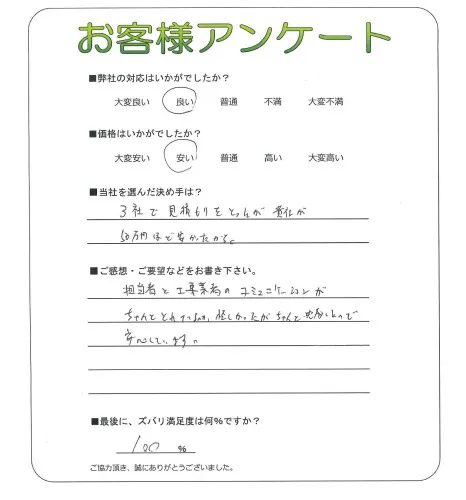 お客様アンケート
■弊社の対応はいかがでしたか？
大変良い 良い 普通 不満 大変不満
■価格はいかがでしたか？
大変安い 安い 普通 高い 大変高い
■当社を選んだ決め手は？
3社で見積もりをとったが 貴社が
50万円ほど安かったから。
■ご感想・ご要望などをお書き下さい。
担当者と工事業者のコミュニケーションが
ちゃんととれ
ちゃんと
安心しています。
■最後に、ズバリ満足度は何%ですか？
100 %
ご協力頂き、誠にありがとうございました。